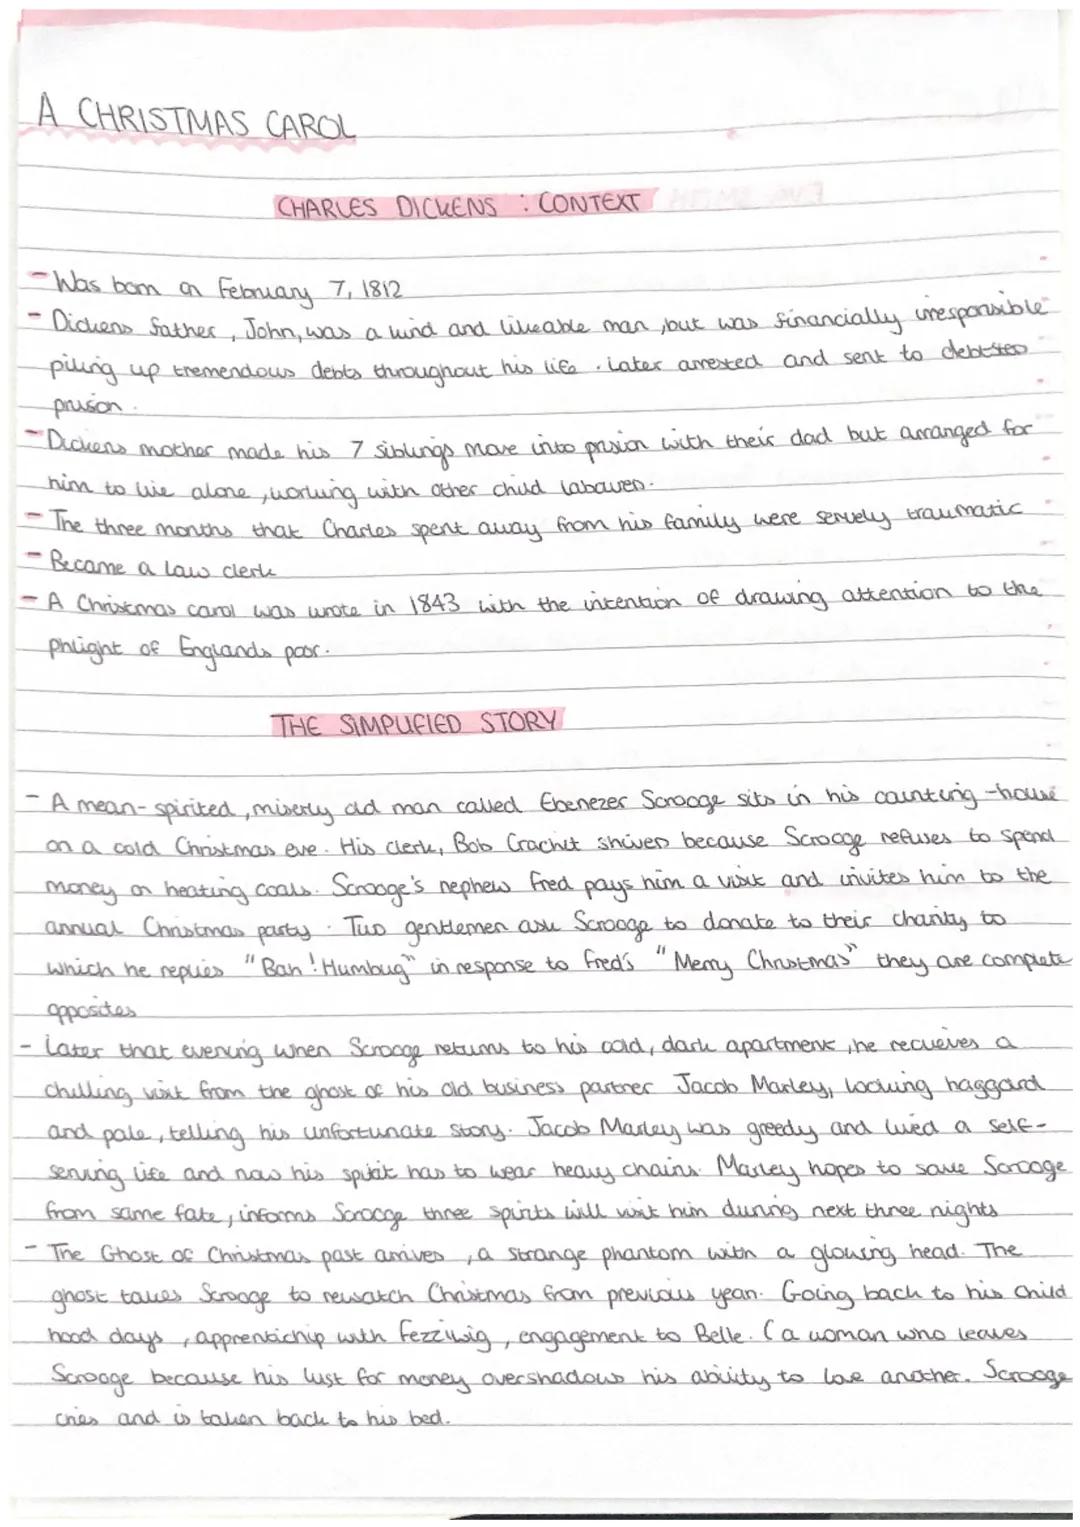 A CHRISTMAS CAROL
CHARLES DICKENS : CONTEXT
- Was born on February 7, 1812
- Dickens father, John, was a kind and likeable man, but was financially irresponsible
piling up tremendous debts throughout his life. Later arrested and sent to debtsteo
prison.
- Dickens mother made his 7 siblings move into prision with their dad but arranged for
him to live alone, working with other child labourers.
- The three months that Charles spent away from his family were servely traumatic
- Became a law clerk
- A Christmas carol was wrote in 1843 with the intention of drawing attention to the
phlight of Englands poor.
THE SIMPLIFIED STORY
- A mean-spirited, miserly old man called Ebenezer Scrooge sits in his counting-house
on a cold Christmas eve. His clerk, Bob Crachit shivers because Scrooge refuses to spend
money on heating coals. Scrooge's nephew Fred pays him a visit and invites him to the
annual Christmas party. Two gentlemen ask Scrooge to donate to their charity to
which he replies "Bah! Humbug" in response to Fred's "Merry Christmas" they are complete
opposites
- Later that evening when Scrooge returns to his cold, dark apartment, he recieves a
chilling visit from the ghost of his old business partner Jacob Marley, looking haggard
and pale, telling his unfortunate story. Jacob Marley was greedy and lived a self-
serving life and now his spirit has to wear heavy chains. Marley hopes to save Scrooge
from same fate, informs Scrooge three spirits will visit him during next three nights
- The Ghost of Christmas past arrives, a strange phantom with a glowing head. The
ghost takes Scrooge to rewatch Christmas from previous years. Going back to his child
hood days, apprentichip with Fezziwig, engagement to Belle. (a woman who leaves
Scrooge because his lust for money overshadows his ability to love another. Scrooge
cries and is taken back to his bed.